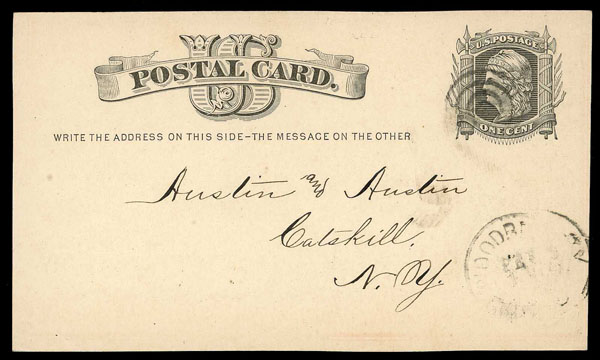 US
POSTAL CARD.
U.S. POSTAGE
ONE CENT
WRITE THE ADDRESS ON THIS SIDE–THE MESSAGE ON THE OTHER
Austin and Austin
Catskill.
N. Y.